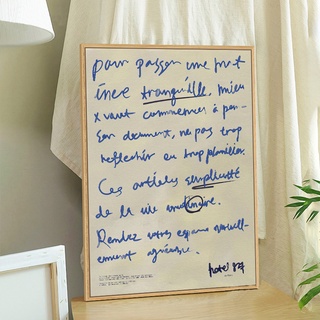 pour passer une nuit
inée tranquille, mieu
x vaut commencer à pen-
ser doucement, ne pas trop
réfléchir ou trop planifier.
Ces articles simplicité
de la vie
Rendez votre espace naturell-
ement agréable.
hotel 87